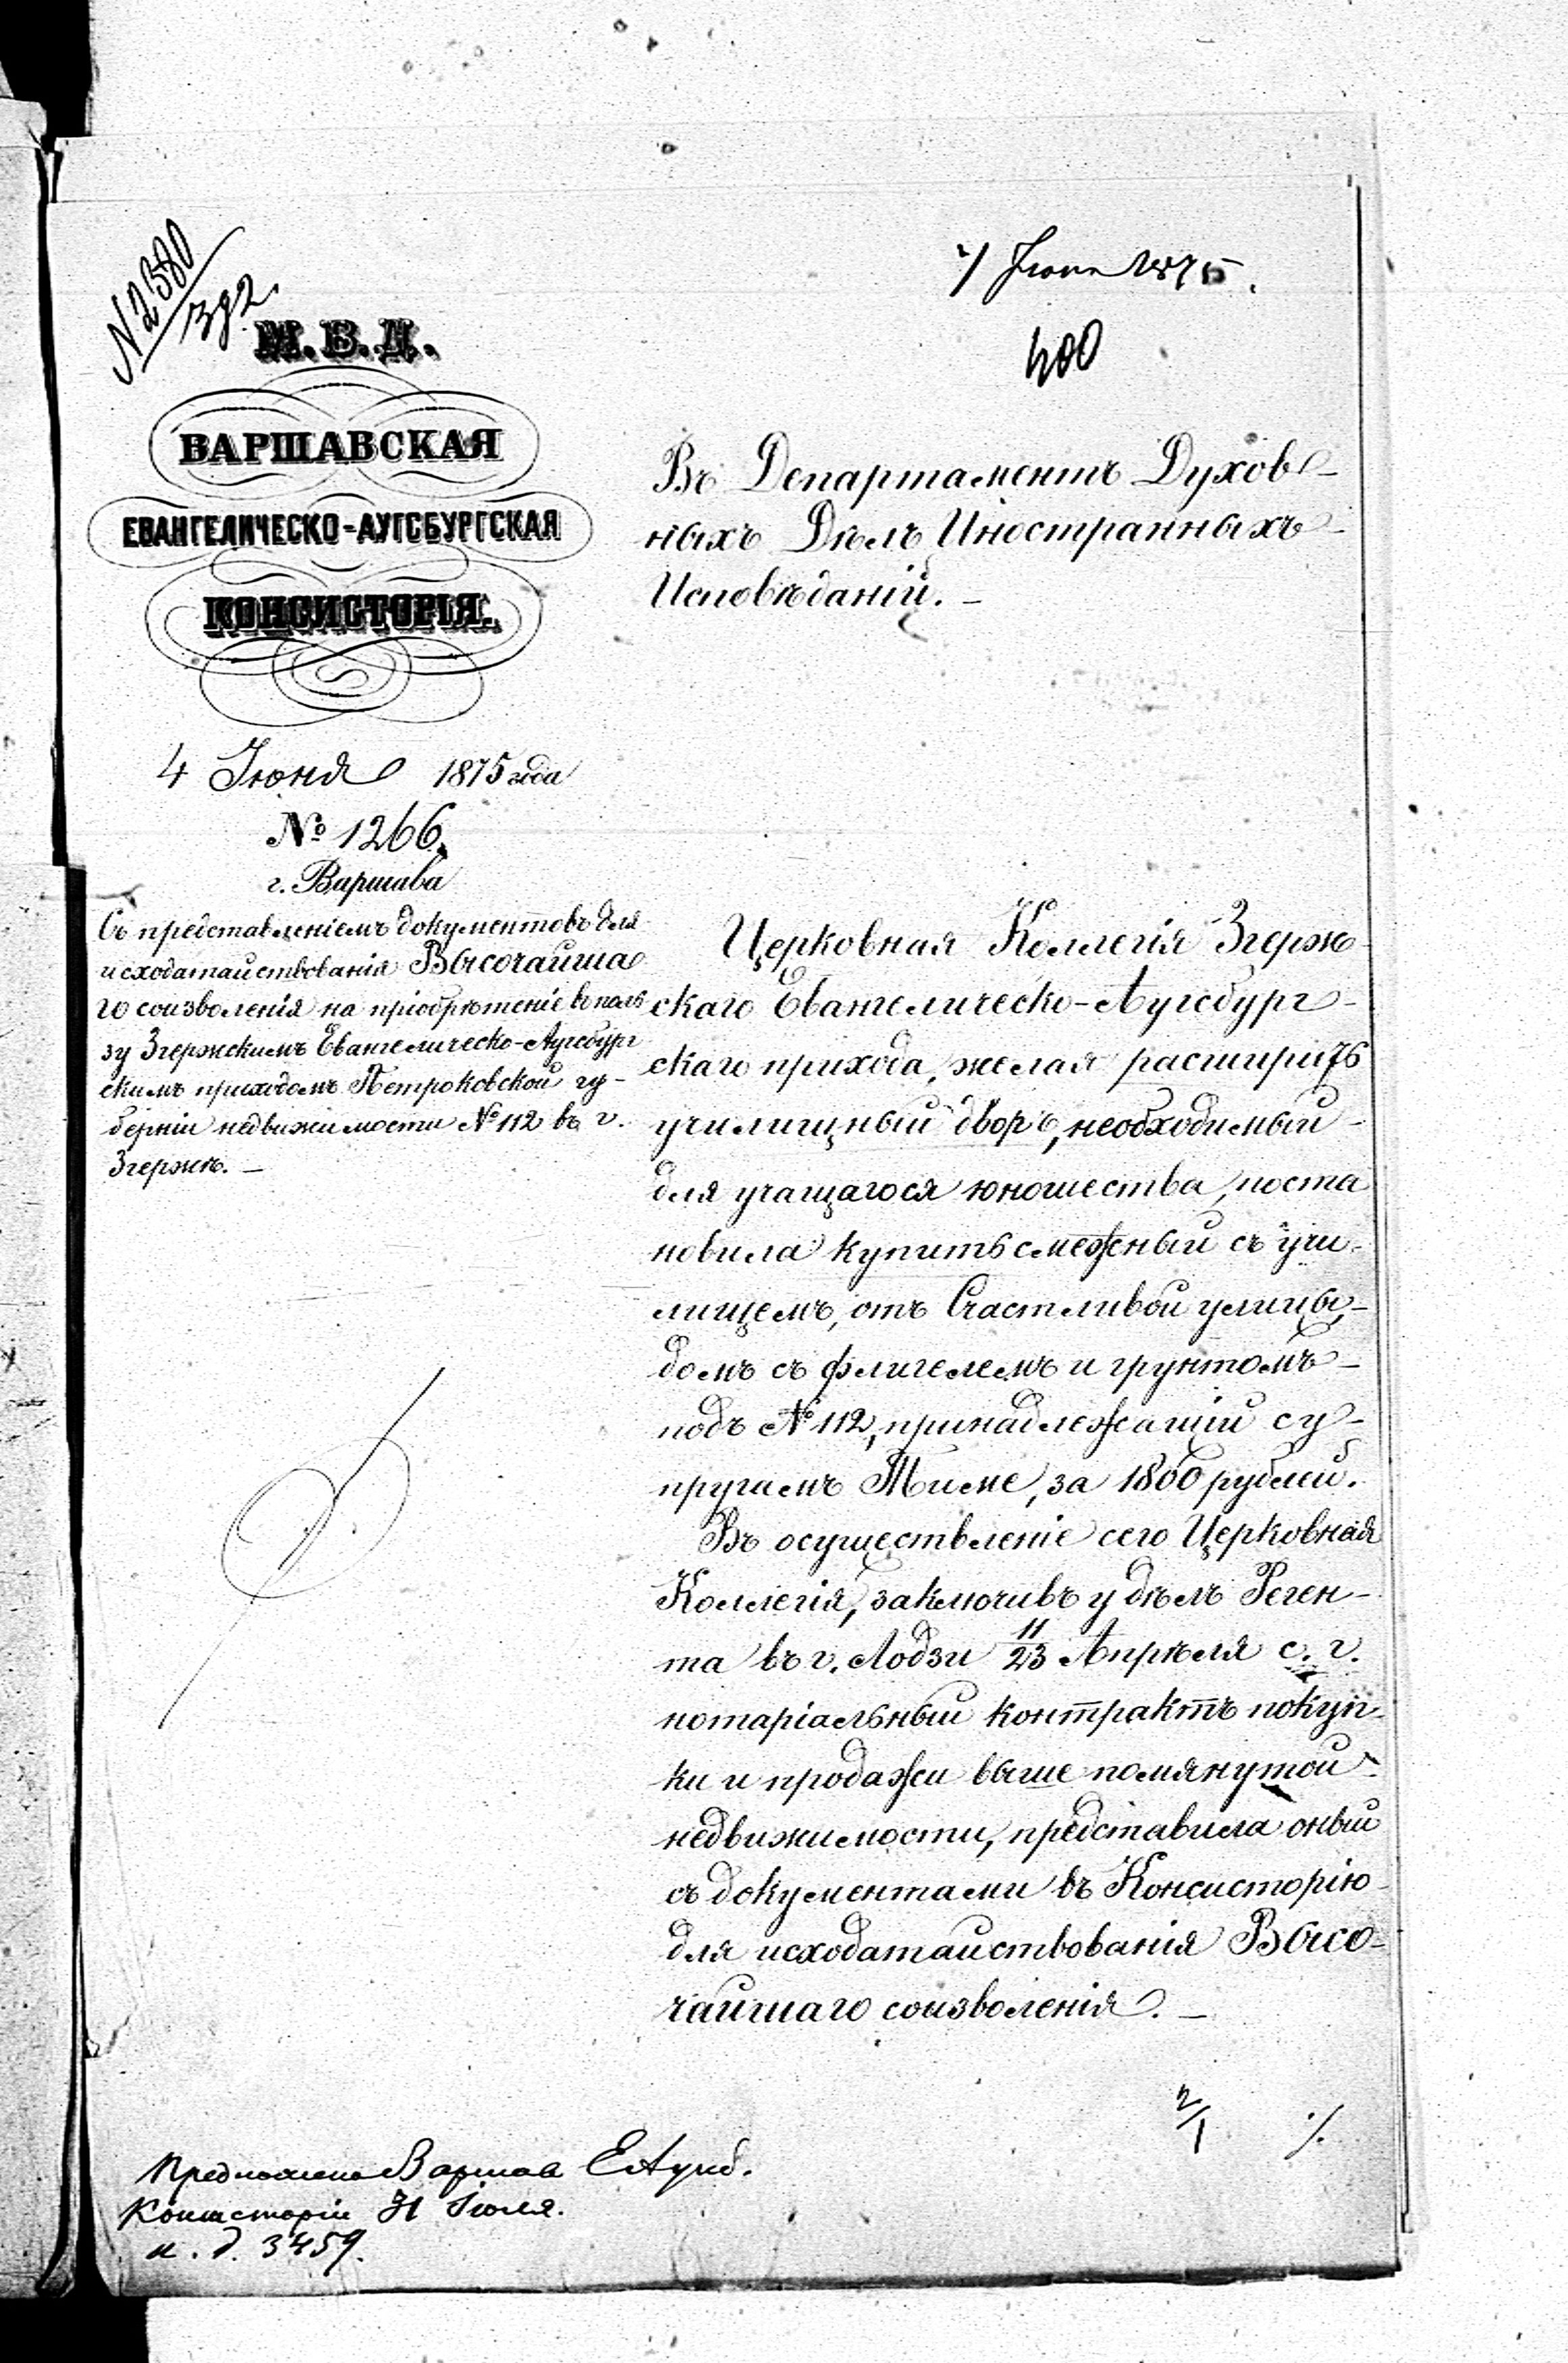 № 2580
392.
7 Іюня 1875.
400
М.В.Д.
ВАРШАВСКАЯ
ЕВАНГЕЛИЧЕСКО-АУГСБУРГСКАЯ
КОНСИСТОРІЯ.
4 Іюня 1875 года
№ 1266.
г. Варшава
Съ представленіемъ документовъ для
исходатайствованія Высочайша
го соизволенія на пріобрѣтеніе въ поль
зу Згержскимъ Евангелическо-Аугсбург
скимъ приходомъ Петроковской гу-
берніи недвижимости № 112 въ г.
Згержѣ. —
Въ Департаментъ Духов-
ныхъ Дѣлъ Иностранныхъ
Исповѣданій. —
Церковная Коллегія Згерж-
скаго Евангелическо-Аугсбург-
скаго прихода, желая расширить
училищный дворъ, необходимый
для учащагося юношества, поста
новила купить смежный съ учи-
лищемъ, отъ Счастливой улицы,
домъ съ флигелемъ и грунтомъ
подъ № 112, принадлежащій су-
пругамъ Тиме, за 1800 рублей.
Въ осуществленіе сего Церковная
Коллегія, заключивъ у дѣлъ Реген-
та въ г. Лодзи 11/23 Апрѣля с. г.
нотаріальный контрактъ покуп-
ки и продажи выше помянутой
недвижимости, представила оный
съ документами въ Консисторію
для исходатайствованія Высо-
чайшаго соизволенія. —
2/1 ·/.
Предложено Варшав Е Аугсб.
Консисторіи 31 Іюля.
н. д. 3459.